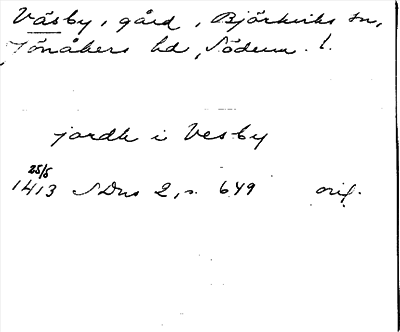 Väsby, gård, Björkviks sn,
Jönåkers hd, Söderm. l.
jordh i Vesby
25/5
1413 SDns 2, s. 649 orig.